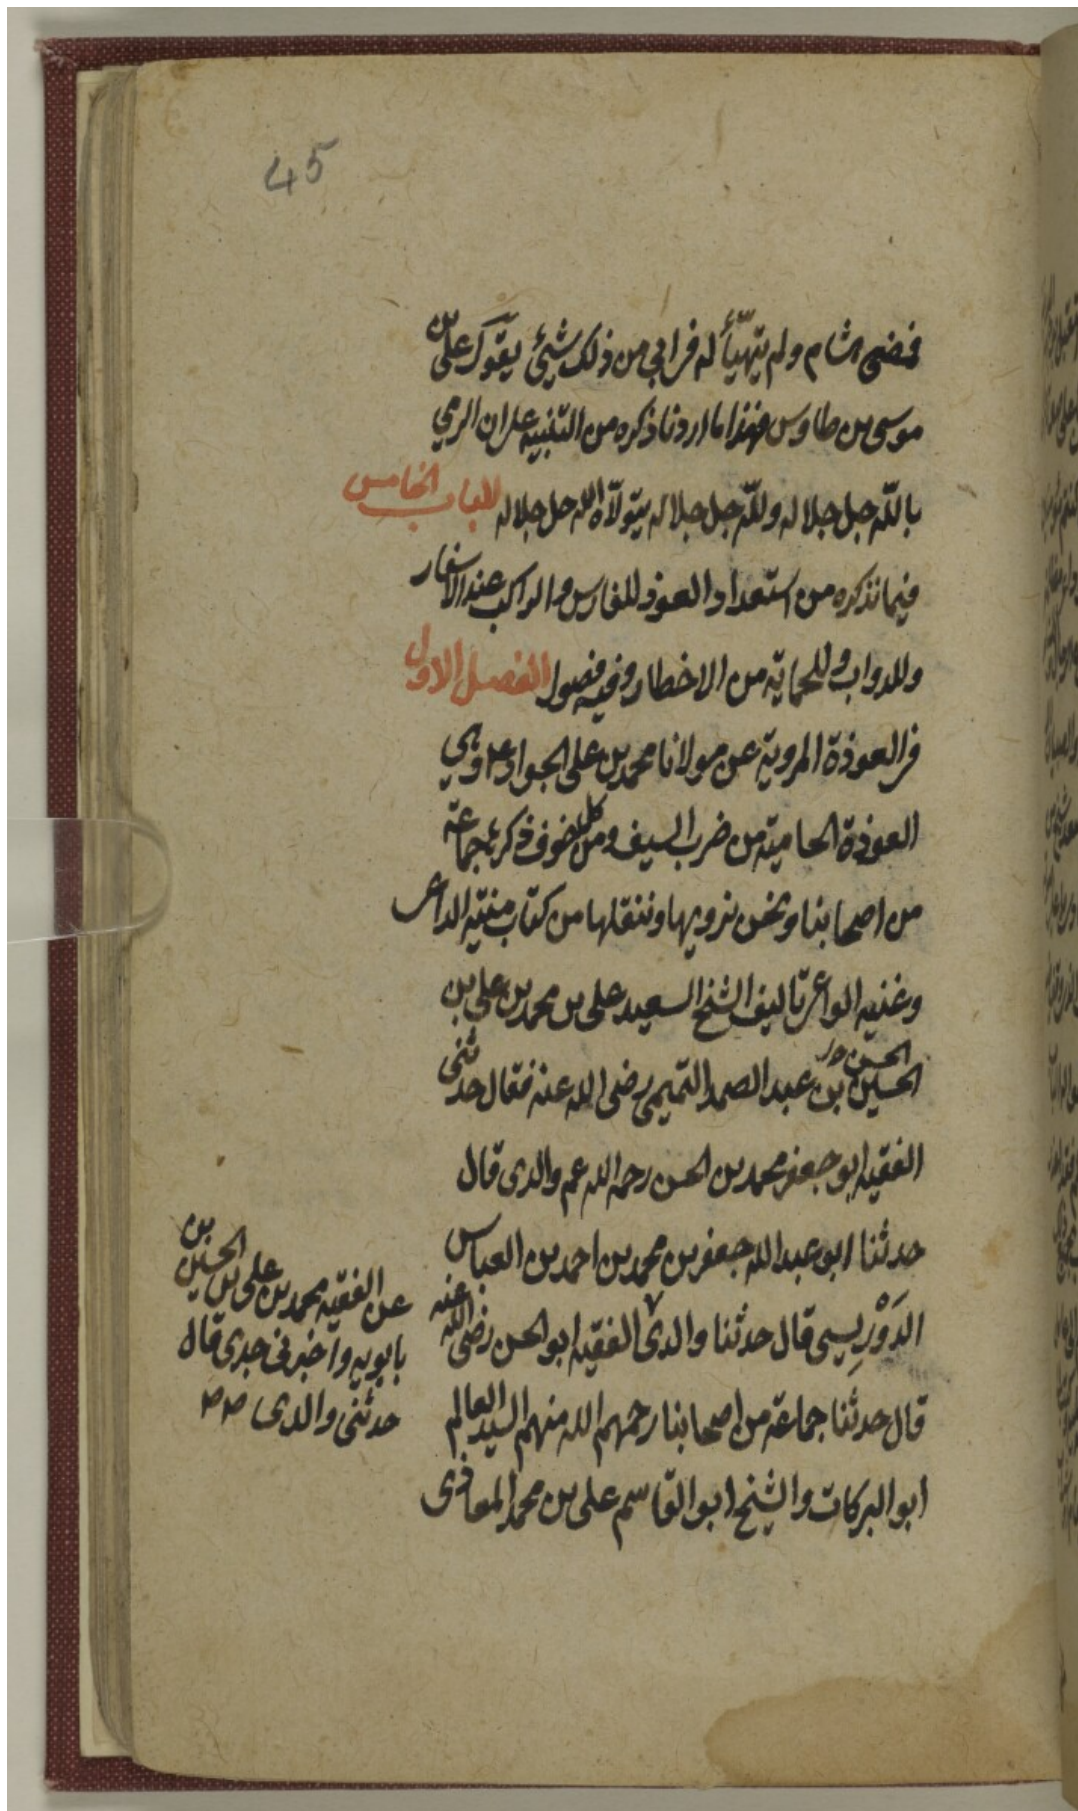 45
فمضى هشام ولم يتهيّأ له فى ابي من ذلك شيئ يقول على بن
موسى بن طاوس فهذا ما اردنا ذكره من التنبيه على ان الرمي
باللّه جل جلاله وللّه جل جلاله يتولاه الله جل جلاله الباب الخامس
فيما نذكره من استعداد العوذ للفارس والراكب عند الاسفار
وللدواب وللحماية من الاخطار وفيه فصول الفصل الاول
فى العوذة المروية عن مولانا محمد بن على الجواد ع وهي
العوذة الحامية من ضرب السيف ومن كل خوف ذكرها جماعة
من اصحابنا ونحن نرويها وننقلها من كتاب منية الداعى
وغنيه الواعى تاليف الشيخ السعيد على بن محمد بن على بن
الحسين بن عبد الصمد التميمى رضى الله عنه فقال حدثنى
الحسن
الفقيه ابو جعفر محمد بن الحسن رحمه الله عم والدى قال
حدثنا ابو عبد الله جعفر بن محمد بن احمد بن العباس
الدَوْرِيسى قال حدثنا والدى الفقيه ابو الحسن رضى الله عنه
قال حدثنا جماعة من اصحابنا رحمهم الله منهم السيد العالم
ابو البركات والشيخ ابو القاسم على بن محمد المعاذى
عن الفقيه محمد بن على بن الحسين بن
بابويه واخبرنى جدى قال
حدثنى والدى